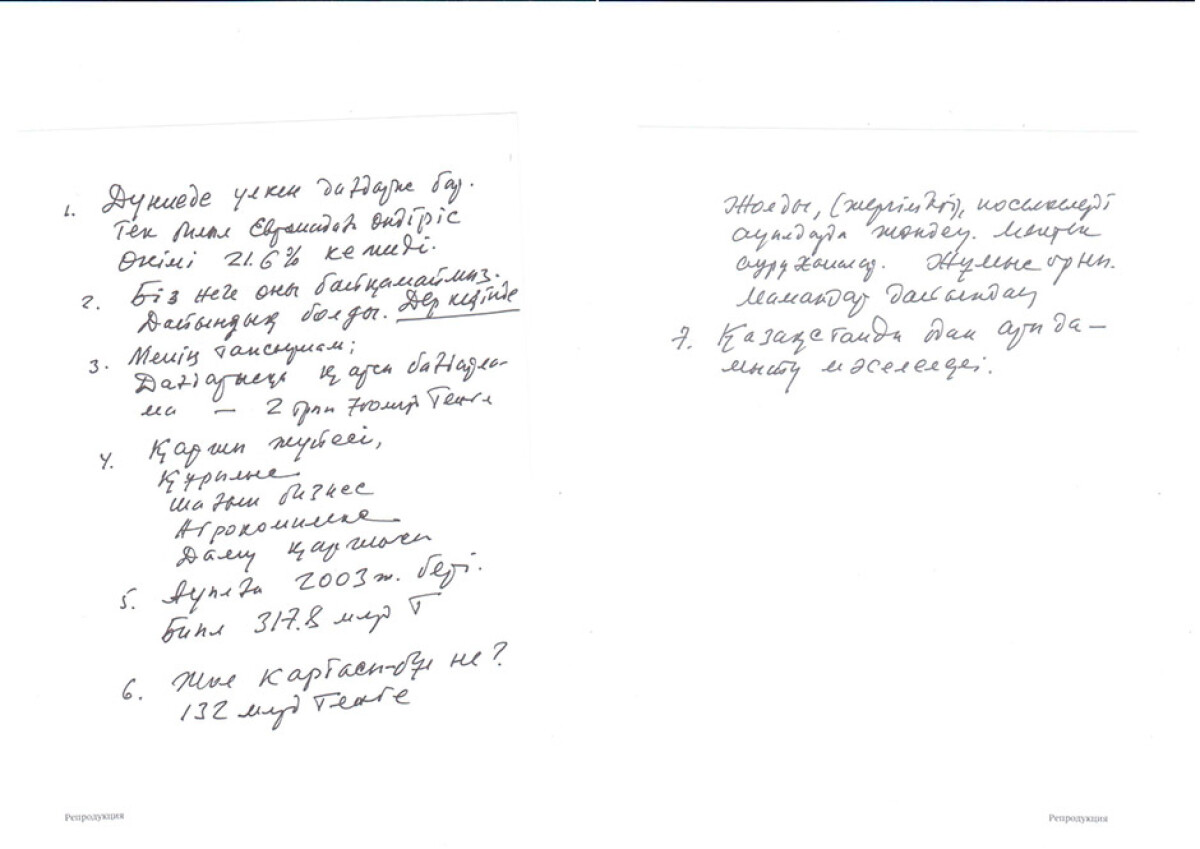 1. Дүниеде үлкен дағдарыс бар.
Тек биыл Еврогодақта өндіріс
өнімі 21.6% кеміді.
2. Біз неге оны байқамаймыз.
Дайындық болды. Дер кезінде
3. Менің тапсырмам;
Дағдарысқа қарсы бағдарла-
ма — 2 трлн 700 млр Теңге
4. Қаржы жүйесі,
Құрылыс
шағын бизнес
Агрокомплекс
Даму қаржысы
5. Ауылға 2003 ж. бері.
Биыл 317.8 млрд Т
6. Жол картасы-бұл не?
132 млрд Теңге
Жолды, (жергілікті), поселкелерді
ауылдарда жөндеу. Мектеп
ауруханалар. Жұмыс орны.
Мамандар дайындау
7. Қазақстанды одан ары да-
мыту мәселелері.
Репродукция
Репродукция